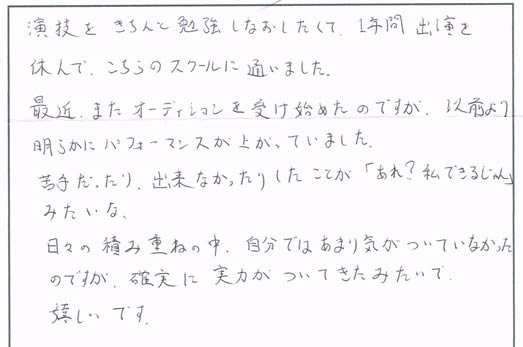 演技を きちんと 勉強しなおしたくて、1年間 出演を
休んで、こちらのスクールに 通いました。
最近、またオーディションを受け始めたのですが、以前より
明らかに パフォーマンスが上がっていました。
苦手だったり、出来なかったりしたことが「あれ?私できるじゃん」
みたいな。
日々の積み重ねの中、自分ではあまり気がついていなかった
のですが、確実に 実力がついてきたみたいで、
嬉しいです。